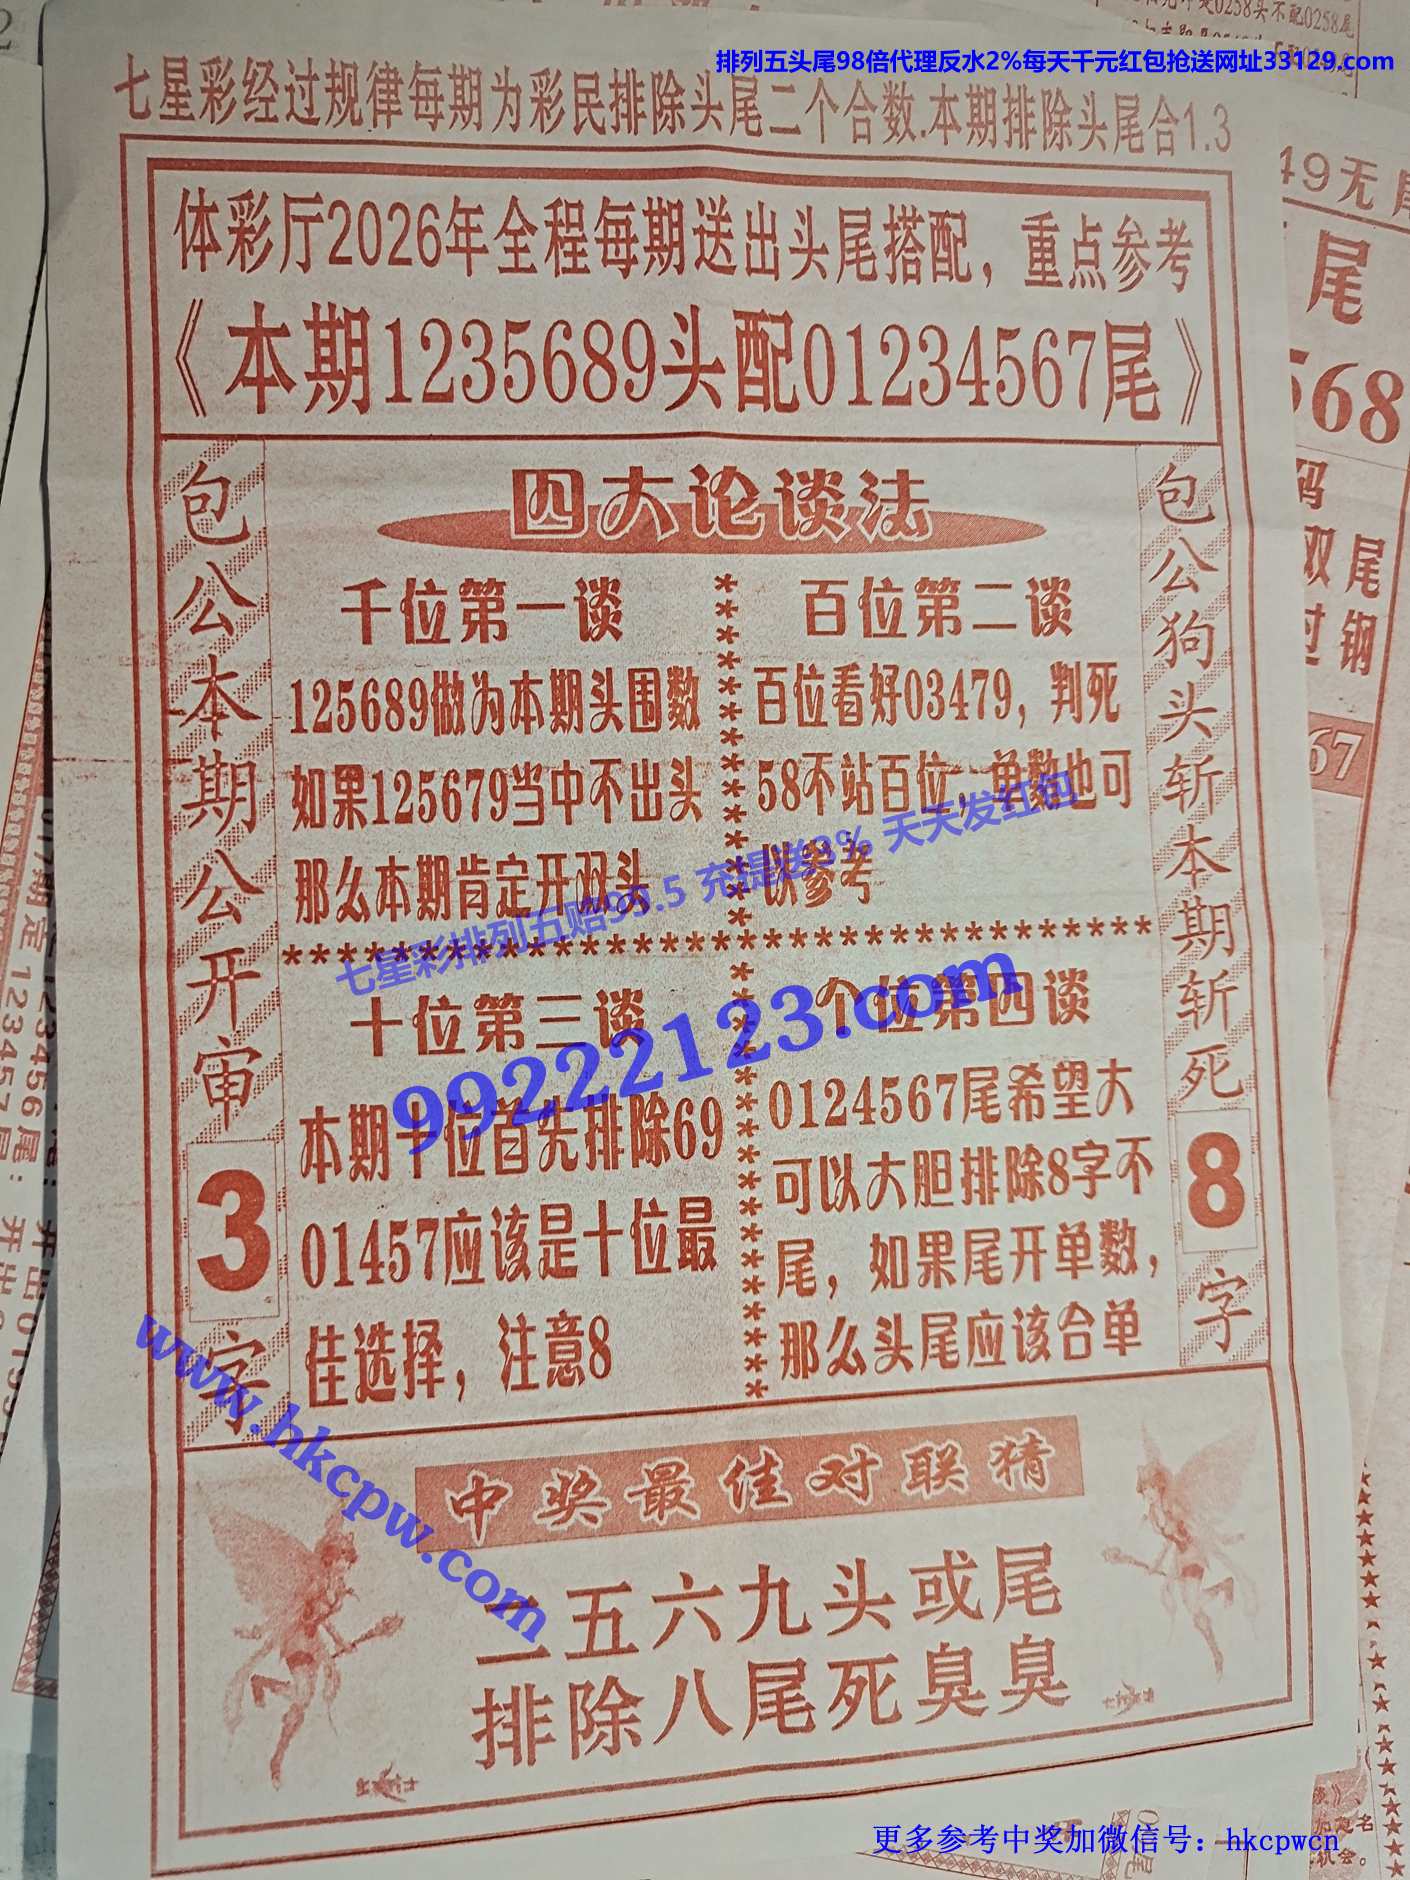 排列五头尾98倍代理反水2%每天千元红包抢送网址33129.com
七星彩经过规律每期为彩民排除头尾二个合数.本期排除头尾合1.3
体彩厅2026年全程每期送出头尾搭配，重点参考
《本期1235689头配01234567尾》
包公本期公开审3字
四大论谈法
千位第一谈
125689做为本期头围数
如果125679当中不出头
那么本期肯定开双头
百位第二谈
百位看好03479，判死
58不站百位，单数也可
以参考
十位第三谈
本期十位首先排除69
01457应该是十位最
佳选择，注意8
个位第四谈
0124567尾希望大
可以大胆排除8字不
尾，如果尾开单数，
那么头尾应该合单
包公狗头斩本期斩死8字
七星彩排列五赔99.5 充提送3% 天天发红包
99222123.com
www.hkcpw.com
中奖最佳对联猜
二五六九头或尾
排除八尾死臭臭
更多参考中奖加微信号：hkcpwcn
49无尾
尾
568
双尾
过钢
67